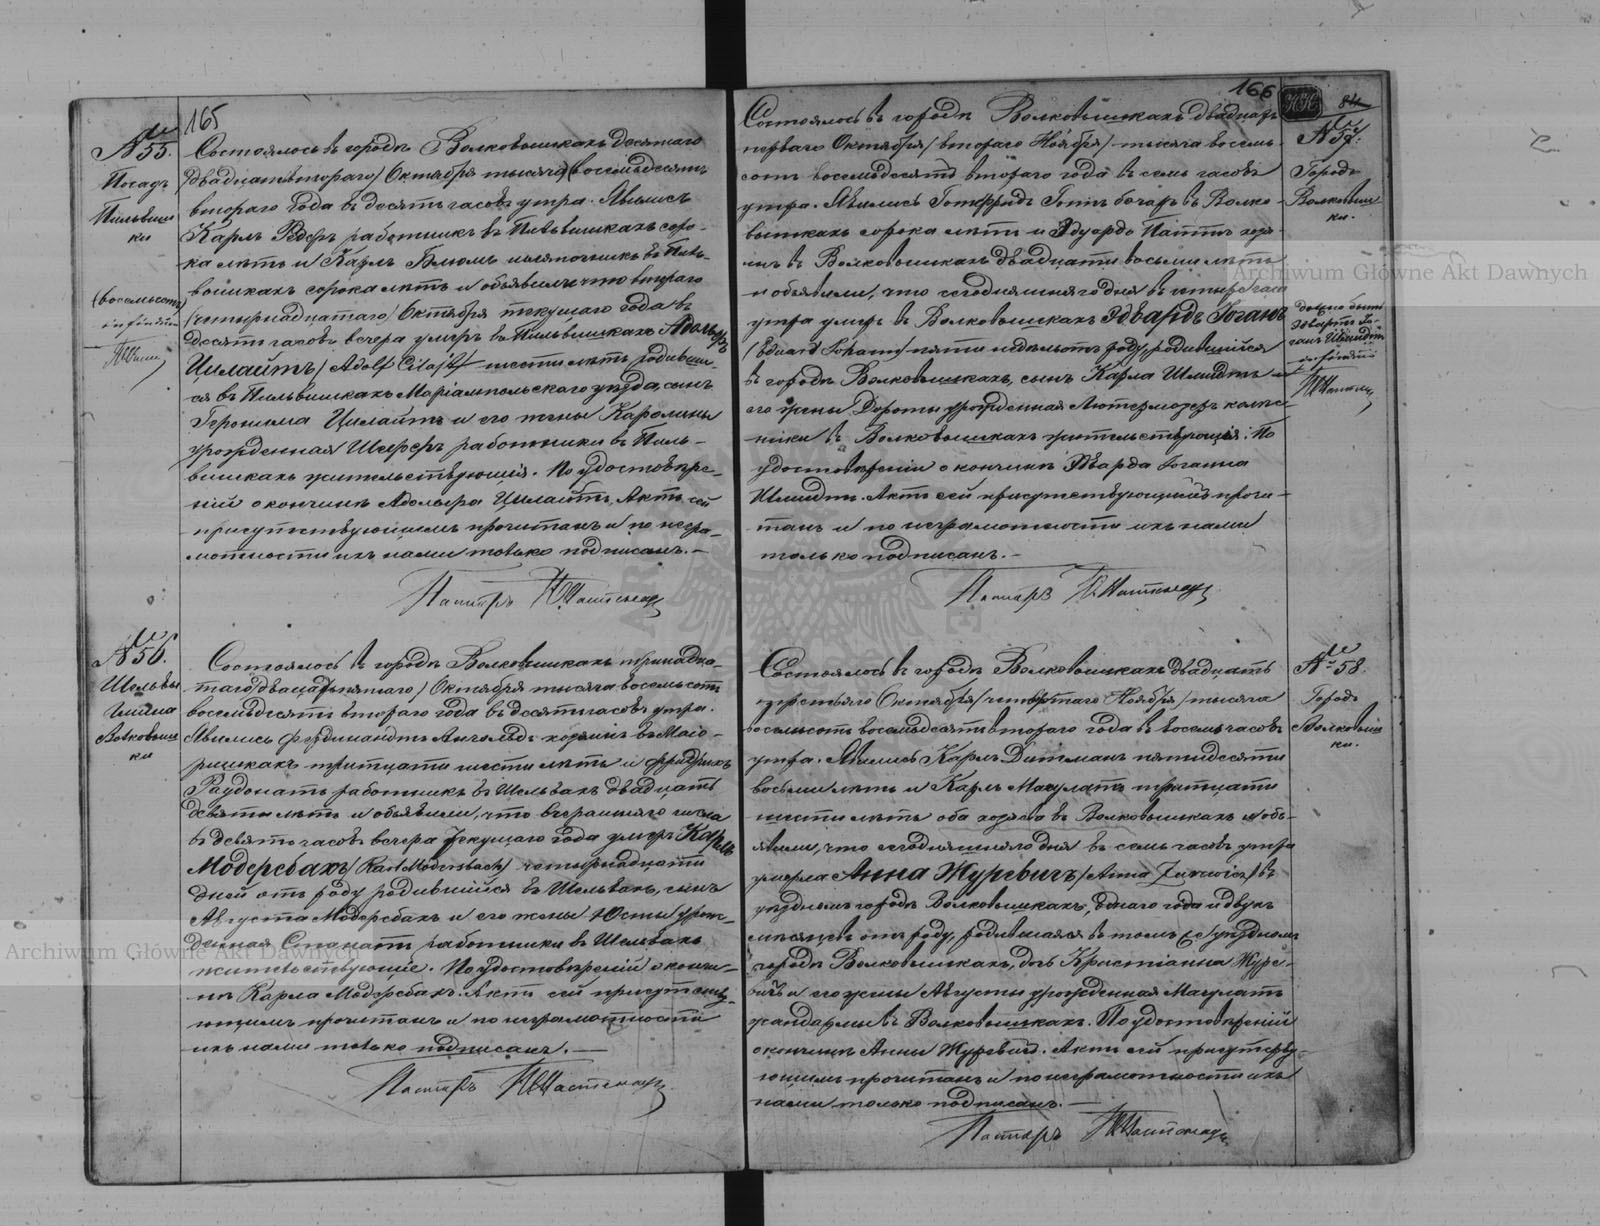 165
№ 55.
Посадъ
Пильвиш
ки
(восемьсотъ)
Состоялось въ городѣ Волковышкахъ десятаго
(двадцатьвтораго) Октября тысяча (восемьдесятъ
втораго года въ десять часовъ утра. Явились
Карлъ Редеръ работникъ въ Пильвишкахъ соро-
ка лѣтъ и Карлъ Блюмъ шляпочникъ въ Пиль-
вишкахъ сорока лѣтъ и объявили что втораго
(четырнадцатаго) Октября текущаго года въ
десять часовъ вечера умеръ въ Пильвишкахъ Адольфъ
Цилайтъ / Adolf Cilajt / шести лѣтъ, родивши-
ся въ Пильвишкахъ Маріампольскаго уѣзда, сынъ
Геронима Цилайтъ и его жены Каролины
урожденная Шеферъ работники въ Пиль-
вишкахъ жительствующія. По удостовѣре-
ній о кончинѣ Адольфа Цилайтъ, Актъ сей
присутствующимъ прочитанъ и по негра-
мотности ихъ нами только подписанъ. —
Пасторъ
№ 56.
Шельвы
гмина
Волковыш
ки
Состоялось въ городѣ Волковышкахъ тринадца-
таго/двадцатьпятаго/ Октября тысяча восемьсотъ
восемьдесятъ втораго года въ десять часовъ утра.
Явились Фердинандъ Ангольдъ хозяинъ въ Маіо-
ришкахъ тритцати шести лѣтъ и Фридрихъ
Раудонатъ работникъ въ Шельвахъ двадцать
девяти лѣтъ и объявили, что вчерашняго числа
въ девять часовъ вечера текущаго года умеръ Карлъ
Модерсбахъ / Karl Modersbach / четырнадцати
дней отъ роду родившійся въ Шельвахъ, сынъ
Августа Модерсбахъ и его жены Юсты урож-
денная Станатъ работники въ Шельвахъ
жительствующіе. По удостовѣреній о кончи-
нѣ Карла Модерсбахъ. Актъ сей присутству-
ющимъ прочитанъ и по неграмотности
ихъ нами только подписанъ. —
Пасторъ
166
84
№ 57.
Городъ
Волковыш
ки.
Состоялось въ городѣ Волковышкахъ двадцать
перваго Октября / втораго Ноября / тысяча восемь-
сотъ восемьдесятъ втораго года въ семь часовъ
утра. Явились Готфридъ Готъ бочаръ въ Волко-
вышкахъ сорока лѣтъ и Эдуардъ Паттъ хозя-
инъ въ Волковышкахъ двадцати восьми лѣтъ
и объявили, что сегодняшняго дня въ четыре часа
утра умеръ въ Волковышкахъ Эдвардъ Іоганъ
/ Eduard Johann / пяти недѣль отъ роду, родившійся
въ городѣ Волковышкахъ, сынъ Карла Шмидтъ и
его жены Дороты урожденная Лютермозеръ камен-
ники въ Волковышкахъ жительствующія. По
удостовѣреній о кончинѣ Эдварда Іоганна
Шмидтъ. Актъ сей присутствующимъ прочи-
танъ и по неграмотности ихъ нами
только подписанъ. —
Пасторъ
№ 58.
Городъ
Волковыш
ки.
Состоялось въ городѣ Волковышкахъ двадцать
третьяго Октября / четвертаго Ноября / тысяча
восемьсотъ восемьдесятъ втораго года въ восемь часовъ
утра. Явились Карлъ Дитманъ пятидесяти
восьми лѣтъ и Карлъ Махулатъ тритцати
шести лѣтъ оба хозяева въ Волковышкахъ и объ-
явили, что сегодняшняго дня въ семь часовъ утра
умерла Анна Журевичъ / Anna Żurewicz / въ
уѣздномъ городѣ Волковышкахъ, одного года и двухъ
мѣсяцевъ отъ роду, родившаяся въ томъ же уѣздномъ
городѣ Волковышкахъ, дочь Христіанна Журе-
вичъ и его жены Августы урожденная Махулатъ
жандармы въ Волковышкахъ. По удостовѣреній
о кончинѣ Анны Журевичъ. Актъ сей присутству-
ющимъ прочитанъ и по неграмотности ихъ
нами только подписанъ. —
Пасторъ
Archiwum Główne Akt Dawnych
Archiwum Główne Akt Dawnych